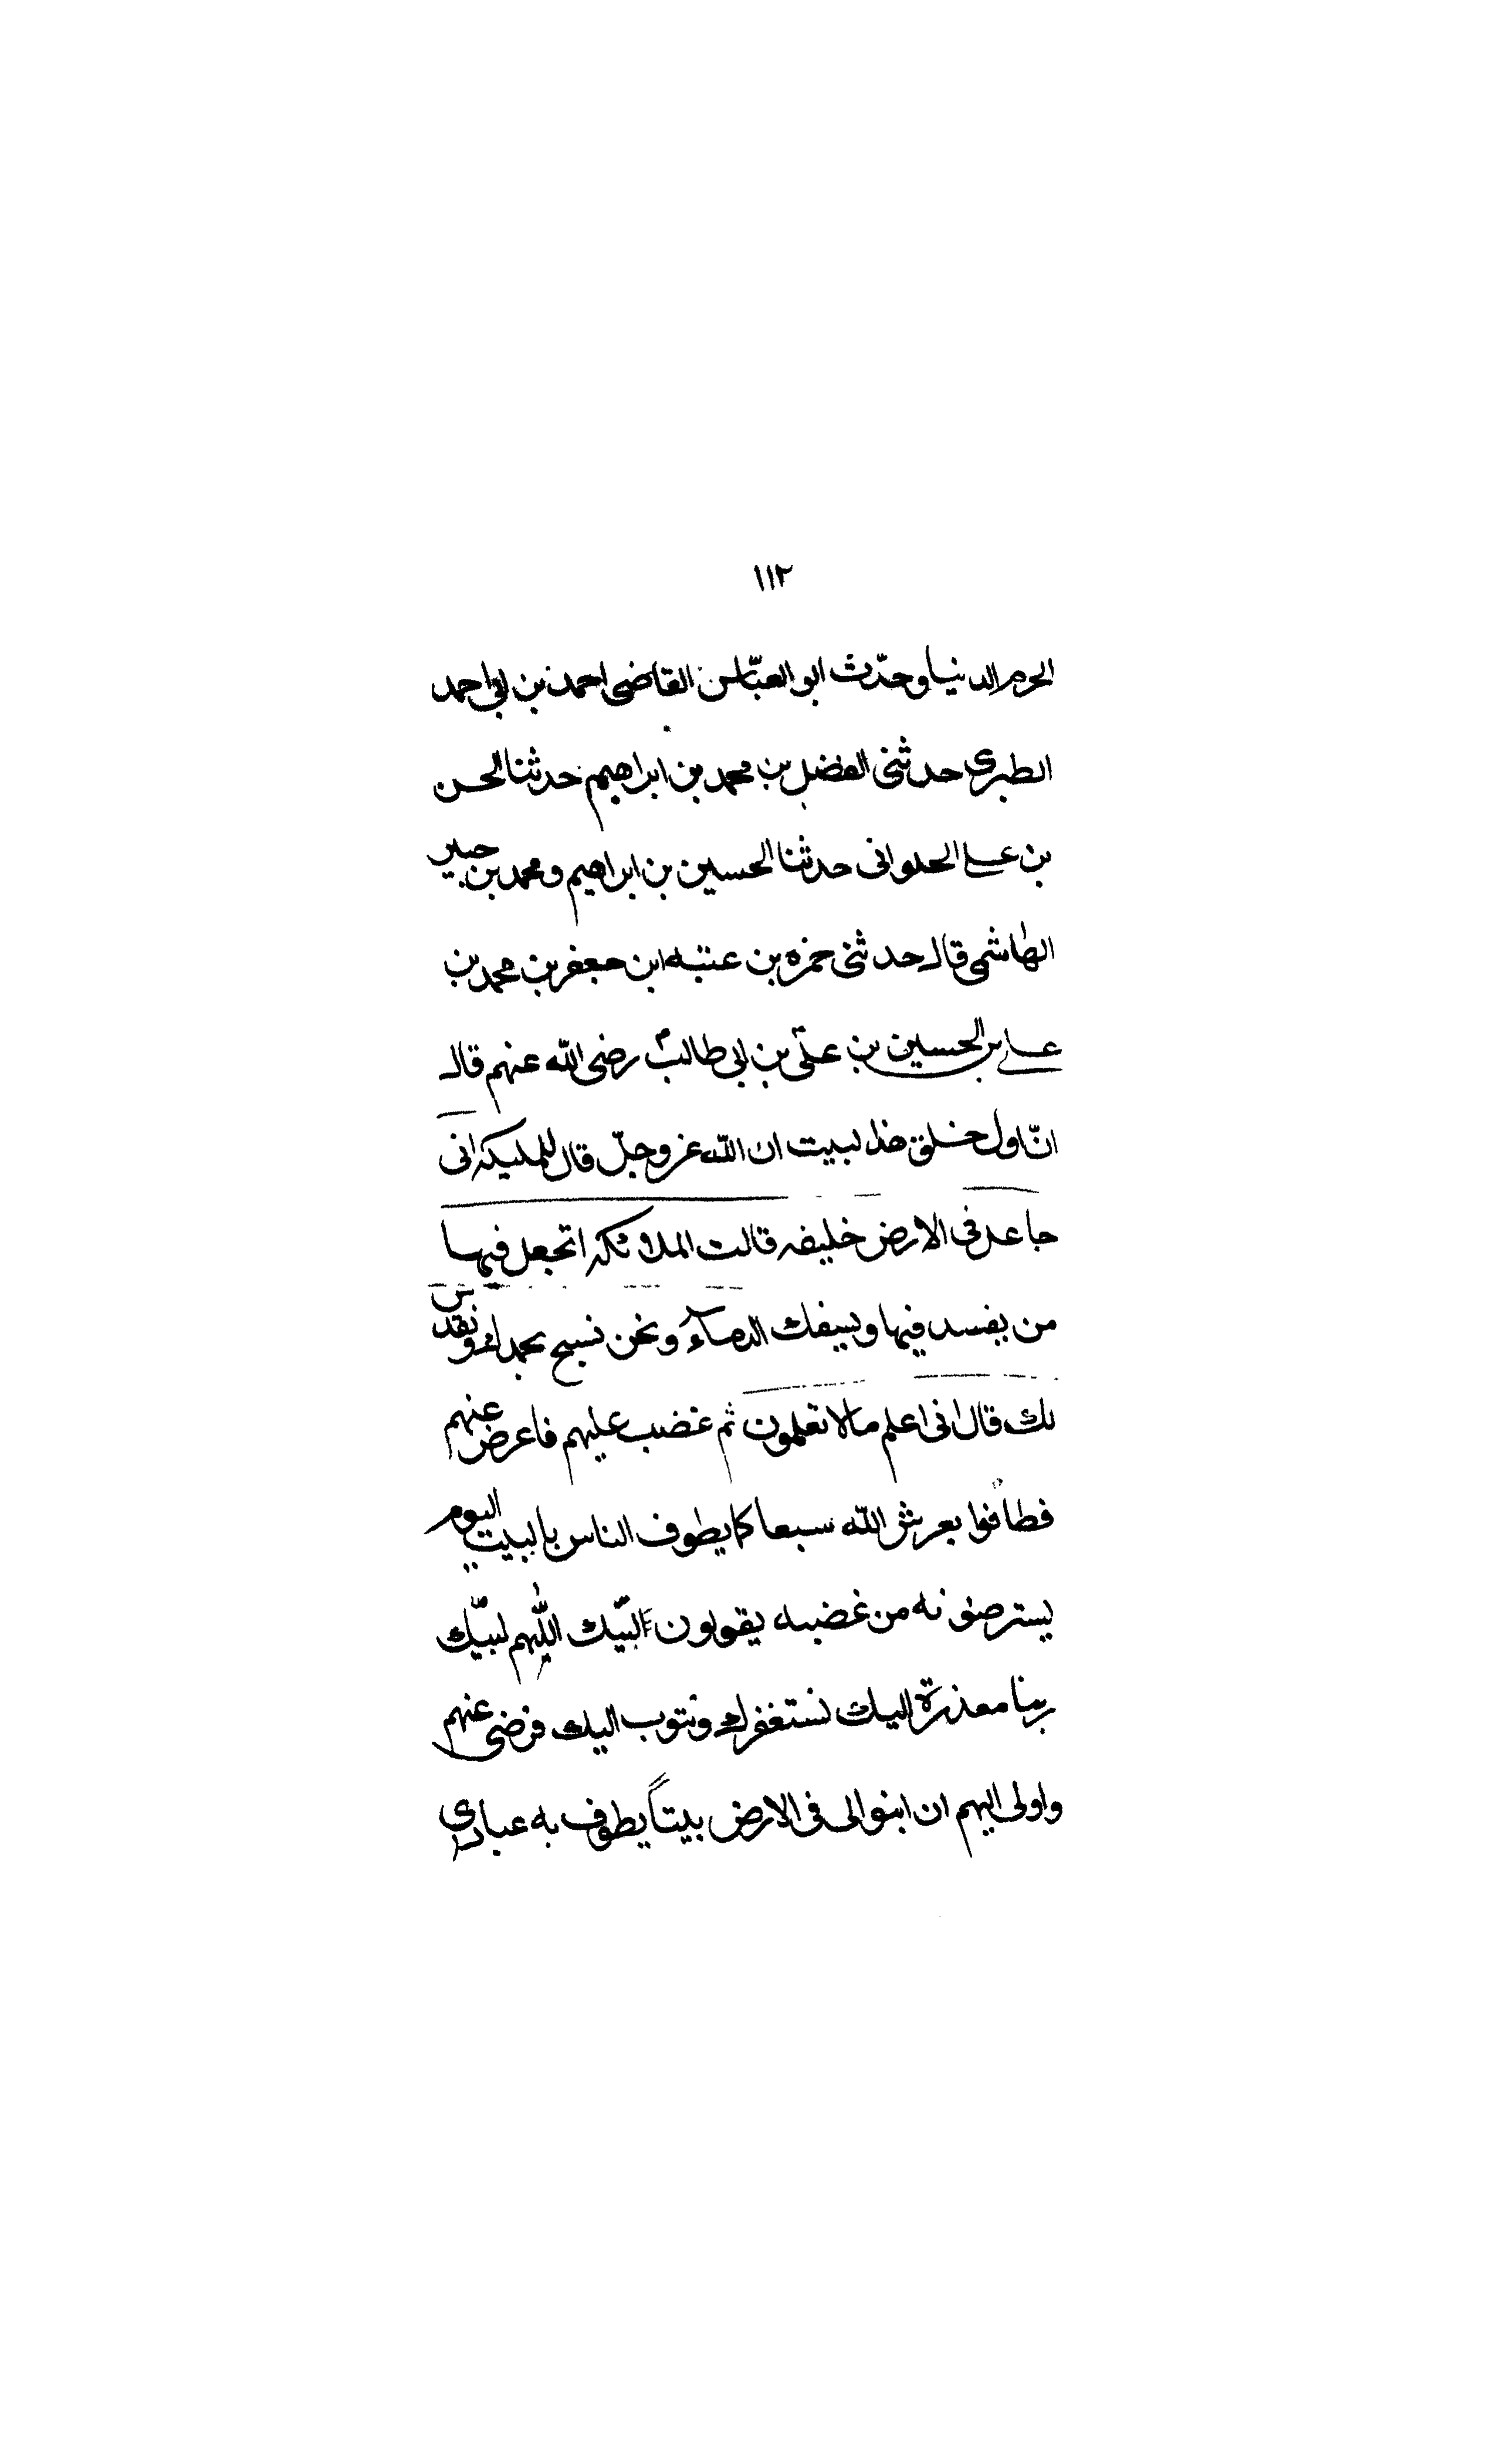 ١١٢
الحرم الدنيا وحدّث ابو العبّاس القاضى احمد بن ابى احمد
الطبرى حدثنى الفضل بن محمد بن ابراهيم حدثنا الحسن
بن على الحلوانى حدثنا الحسين بن ابراهيم ومحمد بن جبير
الهاشمى قال حدثنى حمزه بن عتبه ابن جعفر بن محمد بن
على بن الحسين بن علىّ بن ابى طالب رضى الله عنهم قال
انّ اول خلق هذا لبيت ان الله عز وجلّ قال للمليكه انى
جاعل فى الارض خليفه قالت الملائكه اتجعل فيها
من يفسد فيها ويسفك الدماء ونحن نسبح بحمدك ونقدس
لك قال انى اعلم مالا تعلمون ثم غضب عليهم فاعرض عنهم
فطافوا بعرش الله سبعا كما يطوف الناس بالبيت اليوم
يسترضونه من غضبه يقولون لبّيك اللهم لبّيك
ربنا معذرة اليك نستغفرك ونتوب اليك فرضى عنهم
واولى اليهم ان ابنوا لى فى الارض بيتاً يطوف به عبادى